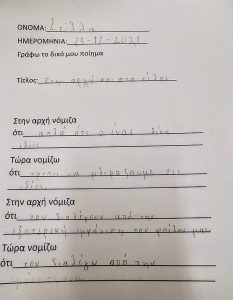 ΟΝΟΜΑ: Στέλλα
ΗΜΕΡΟΜΗΝΙΑ: 25-11-2021
Γράφω το δικό μου ποίημα
Τίτλος: Στην αρχή και στο τέλος
Στην αρχή νόμιζα
ότι απλά ότι ο ένας
Τώρα νομίζω
ότι πρέπει να μοιραζόμαστε τις
ιδέες.
Στην αρχή νόμιζα
ότι τον διαλέγουν από την
εξωτερική εμφάνιση του φίλου μας
Τώρα νομίζω
ότι τον διαλέγω από την